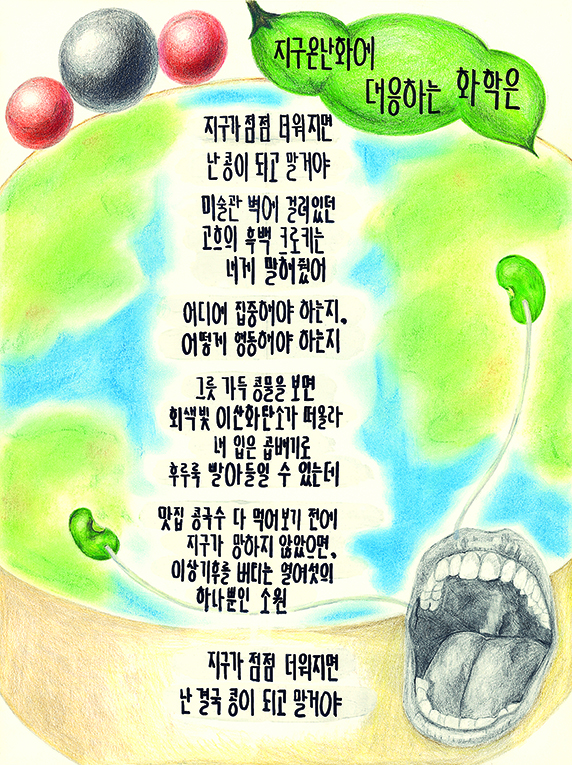 지구온난화에
대응하는 화학은
지구가 점점 더워지면
난 콩이 되고 말거야
미술관 벽에 걸려있던
고흐의 흑백 크로키는
내게 말해줬어
어디에 집중해야 하는지,
어떻게 행동해야 하는지
그릇 가득 콩물을 보면
회색빛 이산화탄소가 떠올라
내 입은 곱배기로
후루룩 빨아들일 수 있는데
맛집 콩국수 다 먹어보기 전에
지구가 망하지 않았으면,
이상기후를 버티는 열여섯의
하나뿐인 소원
지구가 점점 더워지면
난 결국 콩이 되고 말거야